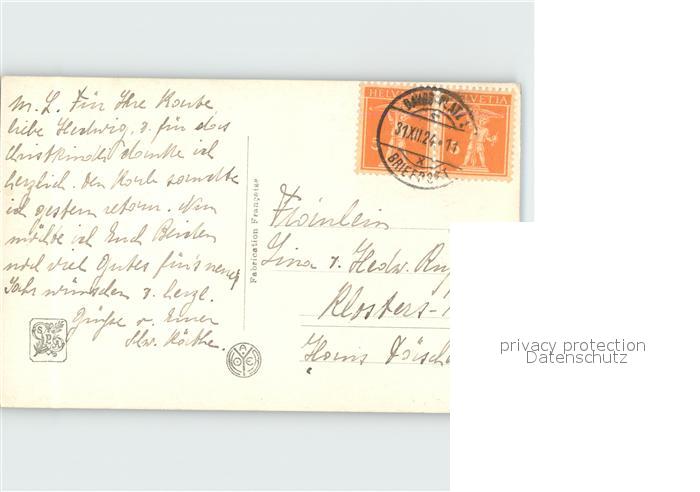 M. L. Für Ihre Karte
liebe Hedwig, u. für das
Christkindli danke ich
herzlich. Den Korb sandte
ich gestern retour. Nun
möchte ich Euch Beiden
noch viel Gutes für's neue
Jahr wünschen u. herzl.
Grüsse v. Euer
Käthe.
Fabrication Française
HELVETIA HELVETIA
DAVOS PLATZ 1
31.XII.24-11
BRIEFPOST
Fräulein
Lina u. Hedw.
Klosters-
Haus
privacy protection
Datenschutz